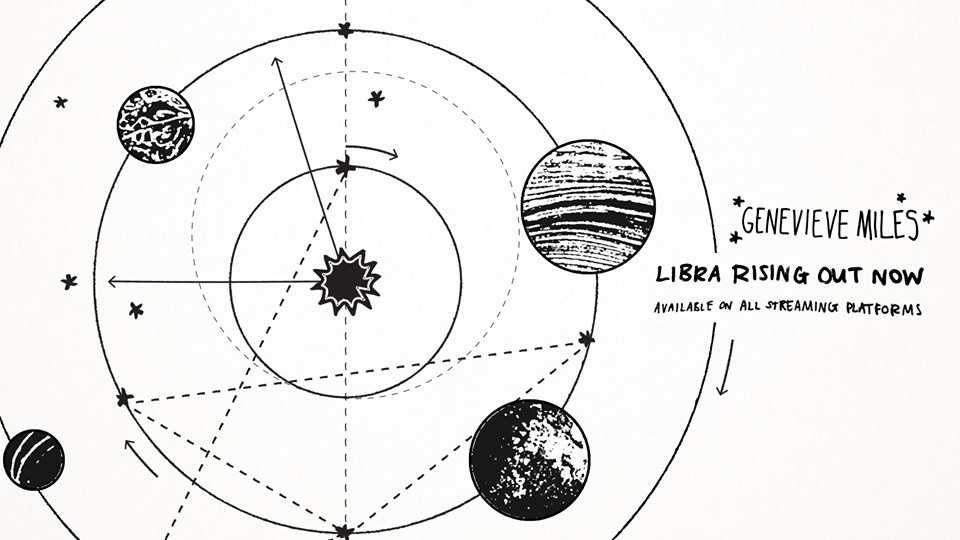 GENEVIEVE MILES
LIBRA RISING OUT NOW
AVAILABLE ON ALL STREAMING PLATFORMS